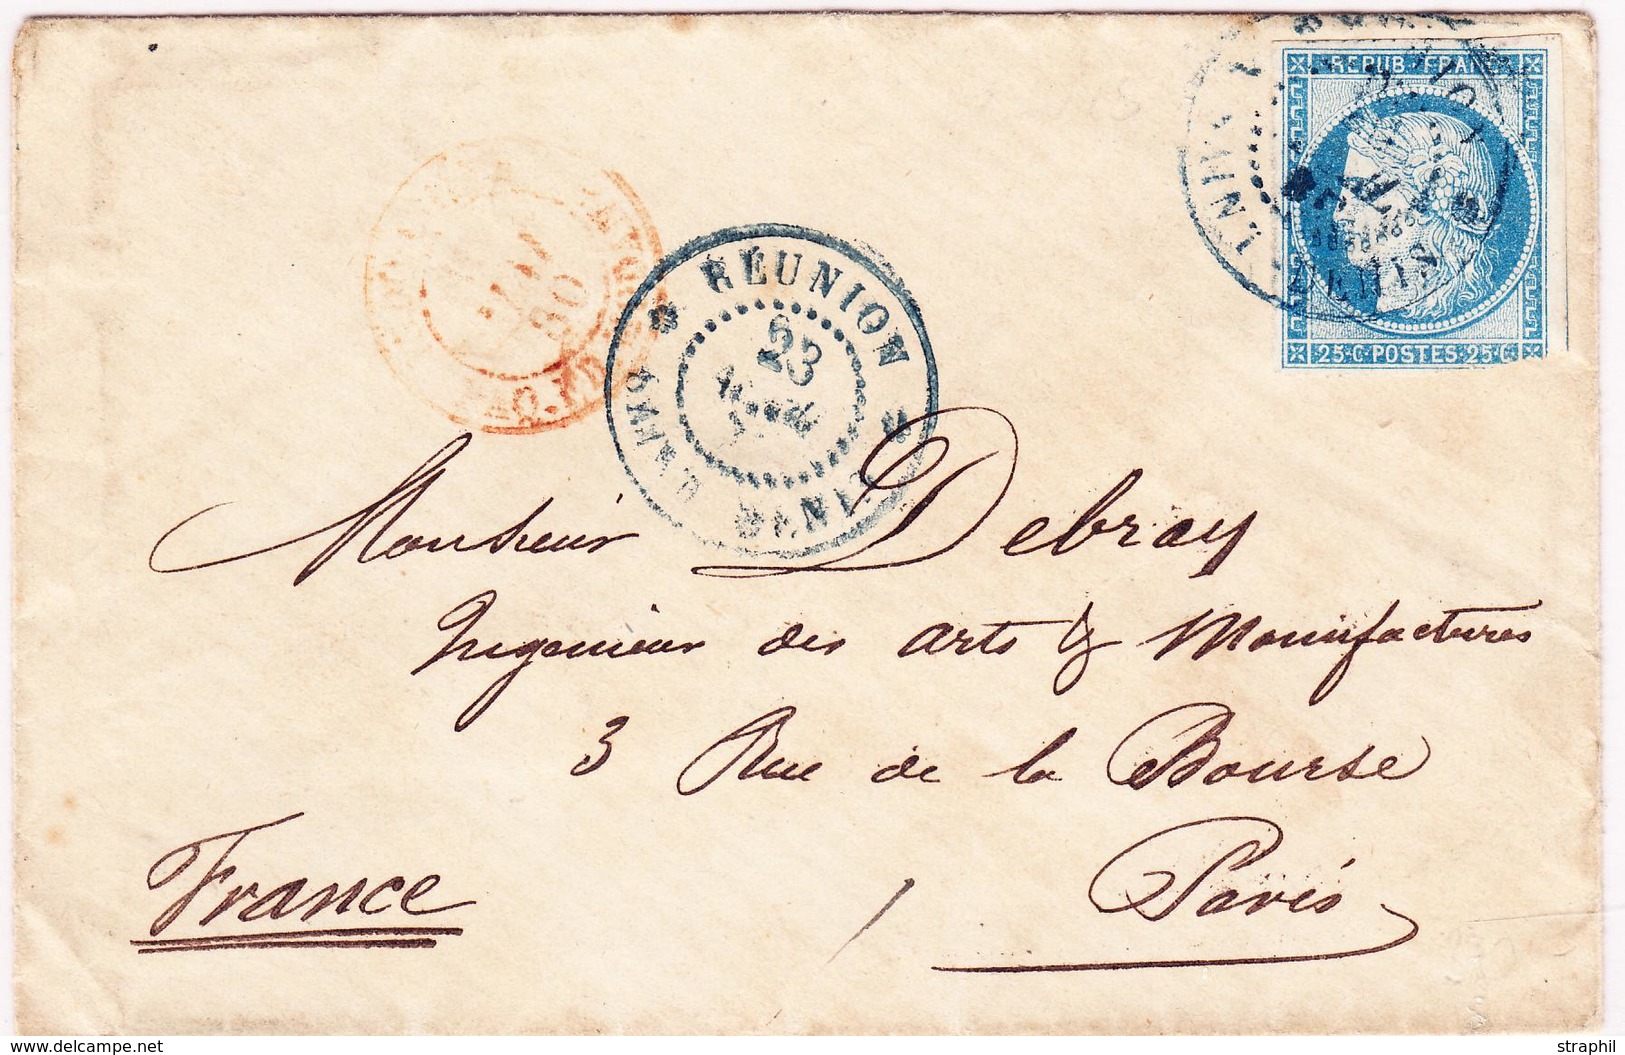 REPUB. FRANC
25·C·POSTES·25·C
RÉUNION
23
80
Monsieur Debray
Ingenieur des arts & Manufactures
3 Rue de la Bourse
Paris
France
delcampe.net
straphil